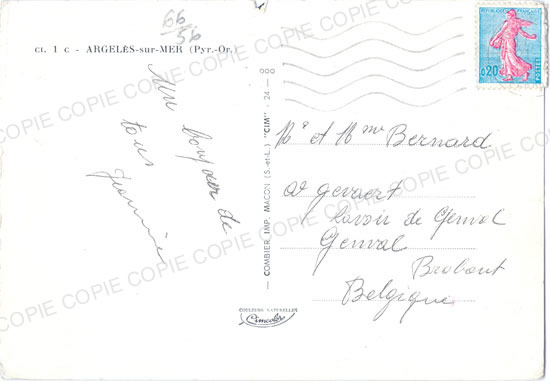 66
56
CI. 1 C - ARGELÈS-sur-MER (Pyr.-Or.)
Un bonjour de
tous
Jeannine
COMBIER IMP. MACON (S.-et-L.) "CIM" - 24 - 00
COULEURS NATURELLES
Cimcolor
REPUBLIQUE FRANÇAISE
0,20
POSTES
Mr et Mme Bernard
av gevaert
Lavoir de Genval
Genval
Brabant
Belgique
COPIE COPIE COPIE COPIE COPIE COPIE COPIE COPIE
COPIE COPIE COPIE COPIE COPIE COPIE COPIE COPIE